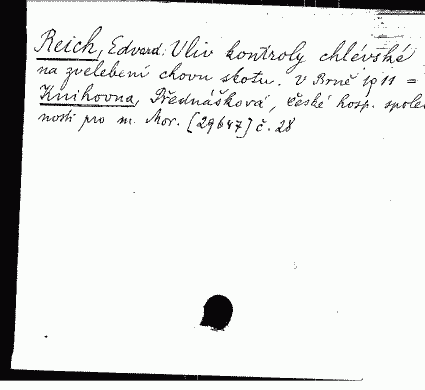 Reich, Edvard: Vliv kontroly chlévské
na zvelebení chovu skotu. V Brně 1911 =
Knihovna, Přednášková, České hosp. společ
nosti pro m. Mor. [29647] č. 28